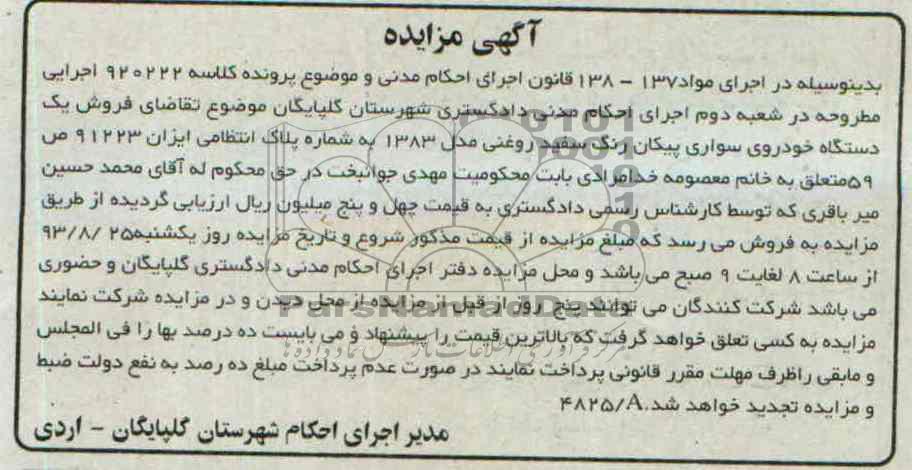 آگهی مزایده
بدینوسیله در اجرای مواد۱۳۷ – ۱۳۸ قانون اجرای احکام مدنی و موضوع پرونده کلاسه ۹۲۰۲۲۲ اجرایی
مطروحه در شعبه دوم اجرای احکام مدنی دادگستری شهرستان گلپایگان موضوع تقاضای فروش یک
دستگاه خودروی سواری پیکان رنگ سفید روغنی مدل ۱۳۸۳ به شماره پلاک انتظامی ایران ۹۱۲۲۳ ص
۵۹متعلق به خانم معصومه خدامرادی بابت محکومیت مهدی جوانبخت در حق محکوم له آقای محمد حسین
میر باقری که توسط کارشناس رسمی دادگستری به قیمت چهل و پنج میلیون ریال ارزیابی گردیده از طریق
مزایده به فروش می رسد که مبلغ مزایده از قیمت مذکور شروع و تاریخ مزایده روز یکشنبه۲۵ /۹۳/۸
از ساعت ۸ لغایت ۹ صبح می باشد و محل مزایده دفتر اجرای احکام مدنی دادگستری گلپایگان و حضوری
می باشد شرکت کنندگان می توانند پنج روز از قبل از مزایده از محل دیدن و در مزایده شرکت نمایند
مزایده به کسی تعلق خواهد گرفت که بالاترین قیمت را پیشنهاد و می بایست ده درصد بها را فی المجلس
و مابقی راظرف مهلت مقرر قانونی پرداخت نمایند در صورت عدم پرداخت مبلغ ده رصد به نفع دولت ضبط
و مزایده تجدید خواهد شد.۴۸۲۵/A
مدیر اجرای احکام شهرستان گلپایگان – اردی
ParsNamadData